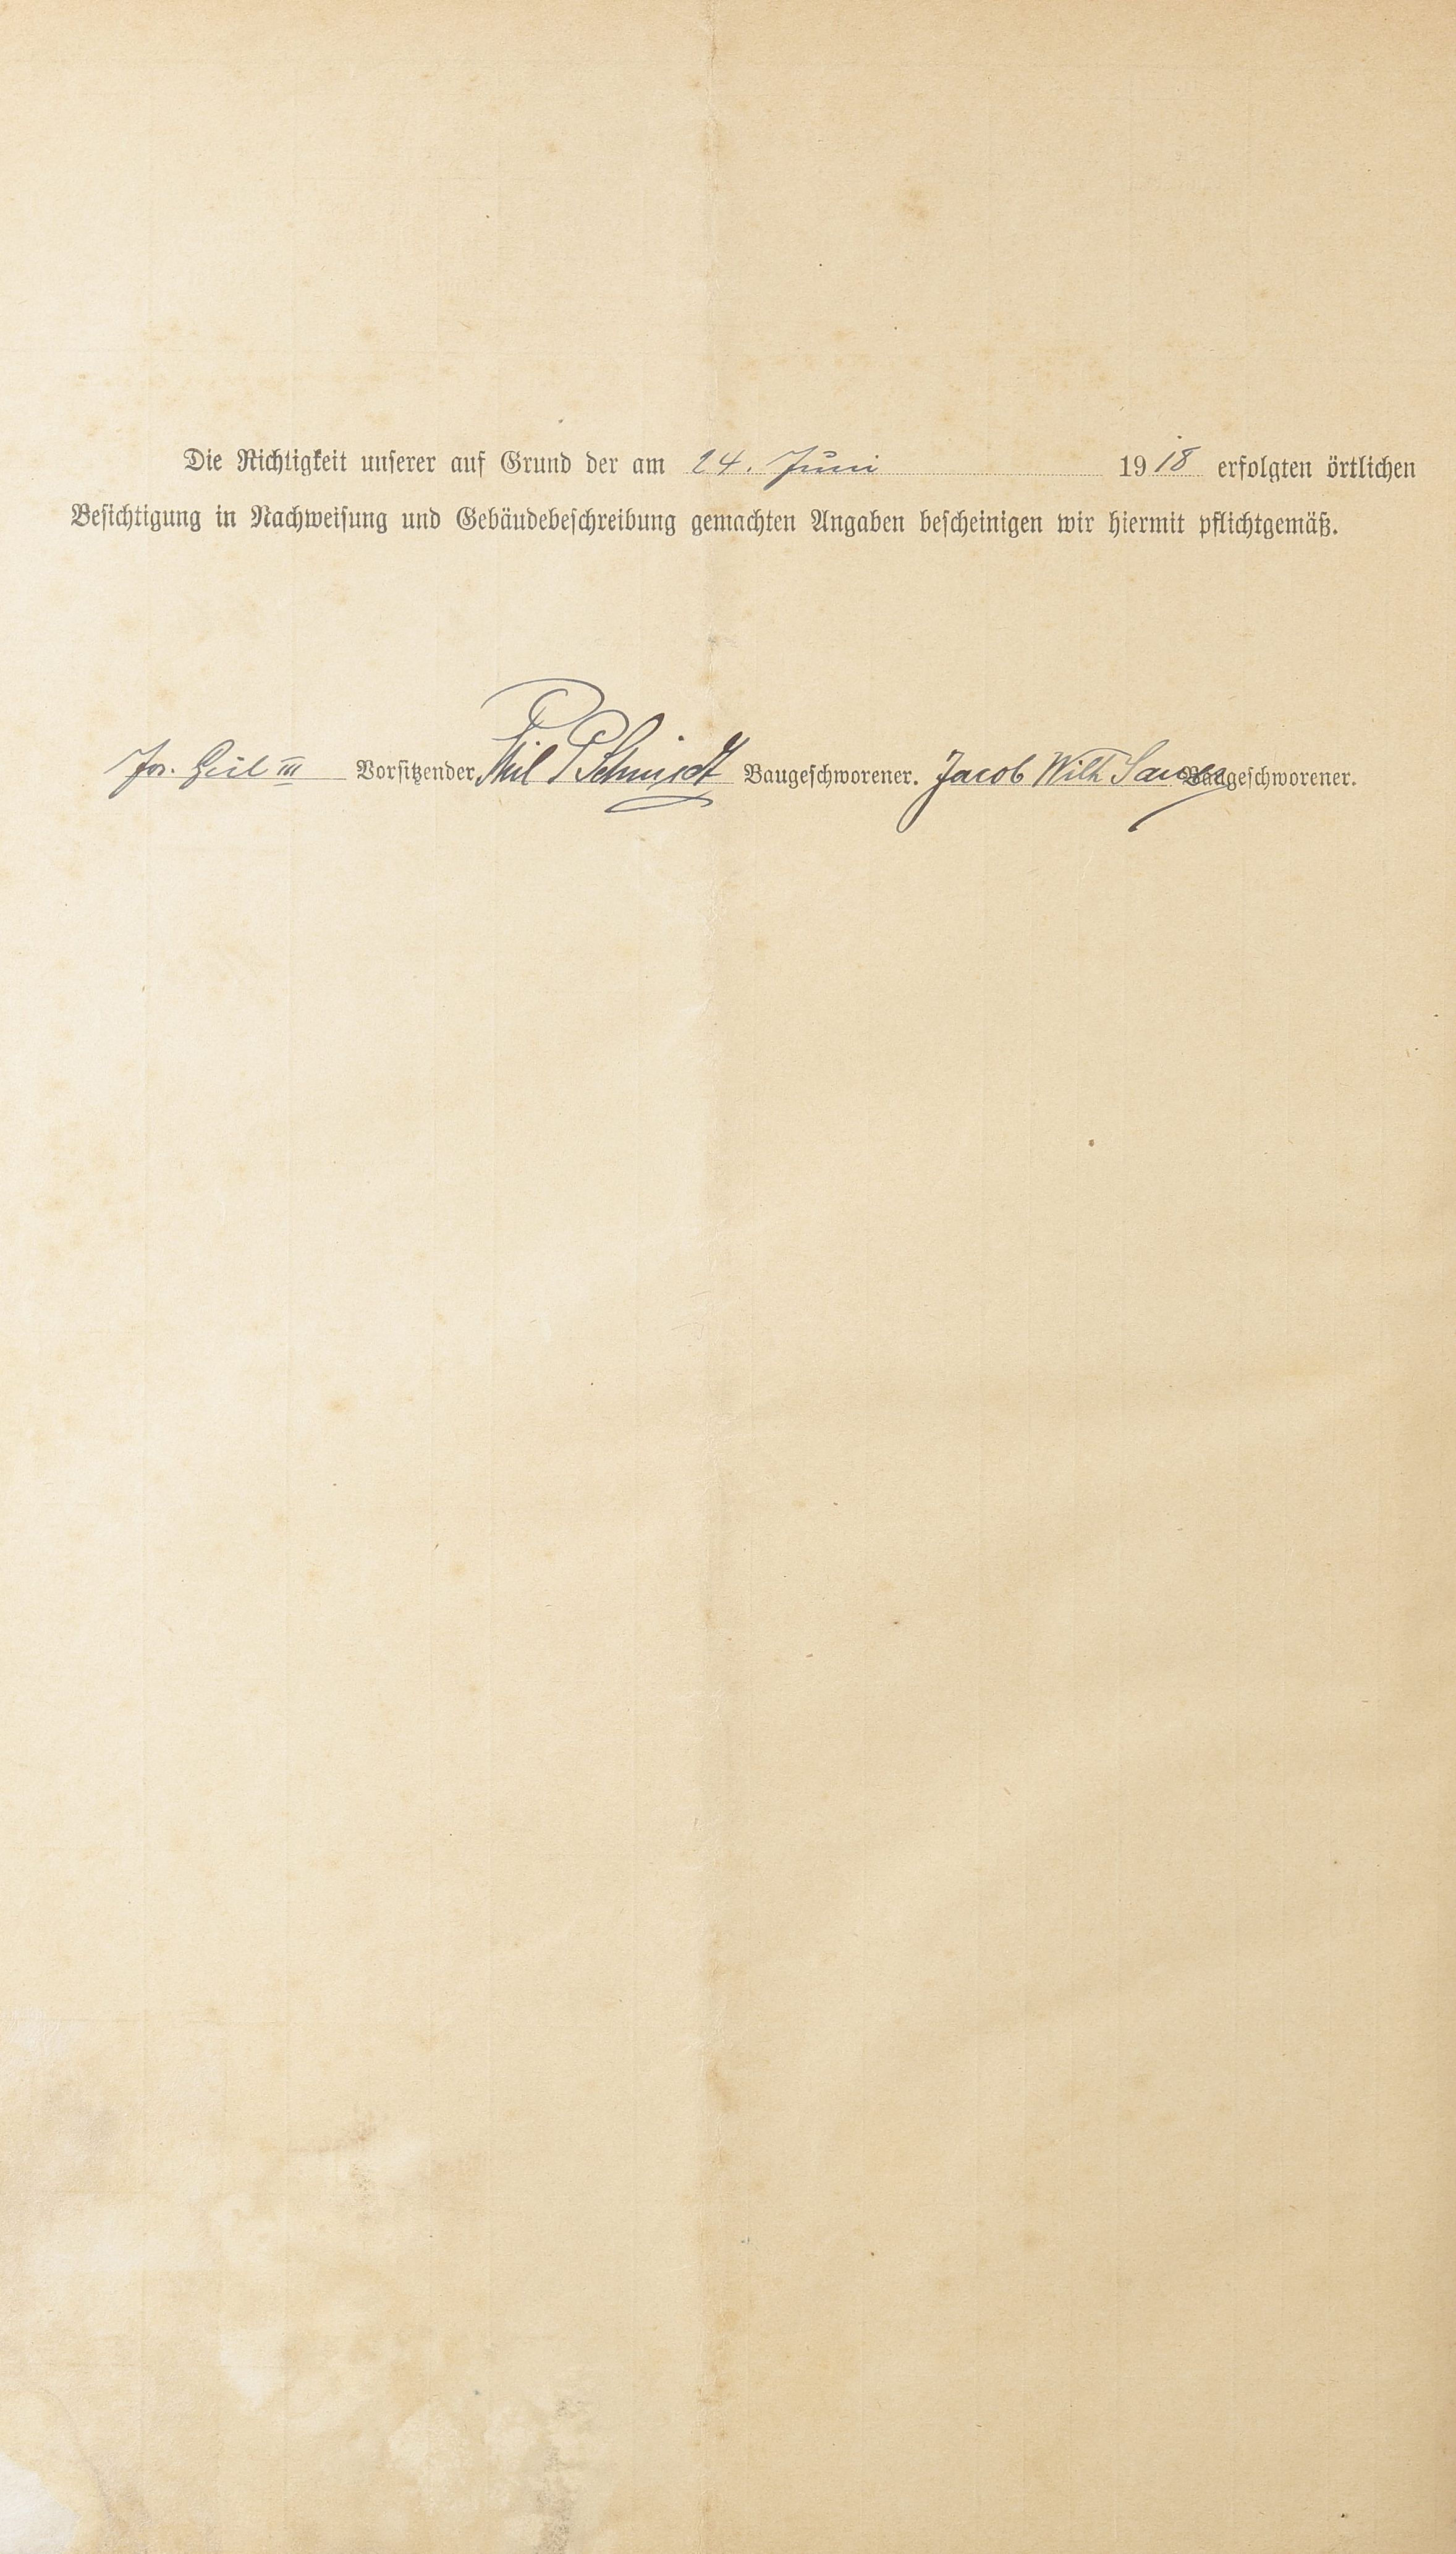 Die Richtigkeit unserer auf Grund der am 24. Juni 1918 erfolgten örtlichen
Besichtigung in Nachweisung und Gebäudebeschreibung gemachten Angaben bescheinigen wir hiermit pflichtgemäß.
Jos. Geil III Vorsitzender, Phil P Schmidt Baugeschworener. Jacob Wilh Baugeschworener.